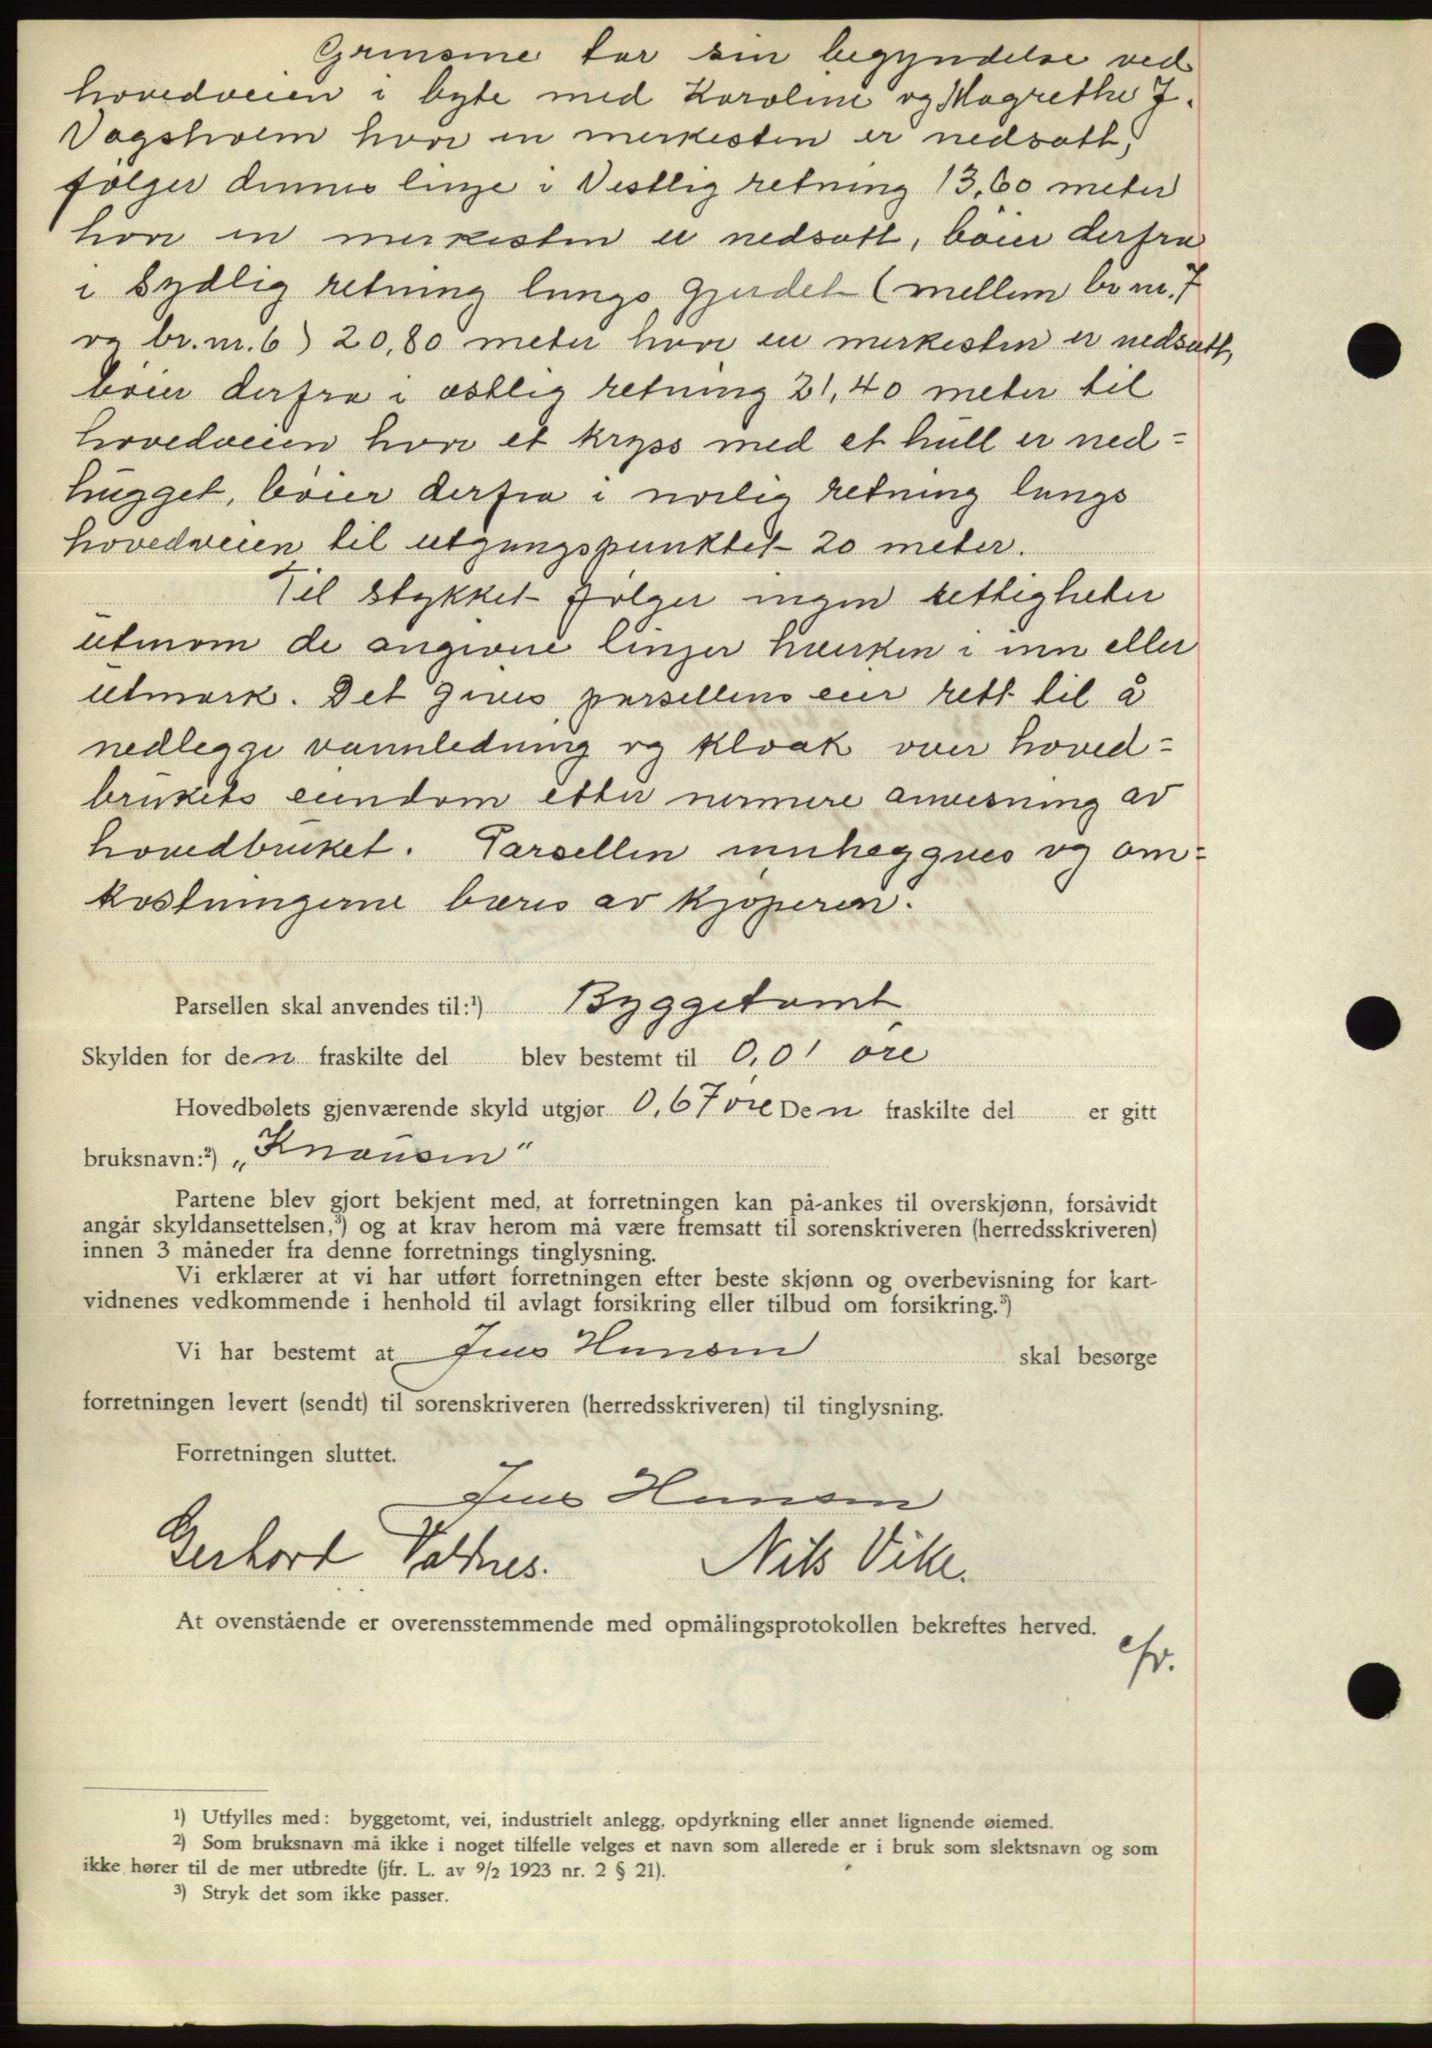 Grensene tar sin begyndelse ved
hovedveien i byte med Karoline og Magrethe J.
Vagsholm hvor en merkesten er nedsatt,
følger dennes linje i Vestlig retning 13,60 meter
hvor en merkesten er nedsatt, bøier derfra
i Sydlig retning langs gjerdet (mellem br.nr. 7
og br.nr. 6) 20,80 meter hvor en merkesten er nedsatt,
bøier derfra i østlig retning 21,40 meter til
hovedveien hvor et kryss med et hull er ned=
hugget, bøier derfra i norlig retning langs
hovedveien til utgangspunktet 20 meter.
Til stykket følger ingen rettigheter
utenom de angivne linjer hverken i inn eller
utmark. Det gives parsellens eier rett til å
nedlegge vannledning og kloak over hoved=
brukets eiendom etter nermere anvisning av
hovedbruket. Parsellen innhegges og om=
kostningerne bæres av kjøperen.
Parsellen skal anvendes til:¹) Byggetomt
Skylden for den fraskilte del blev bestemt til 0,01 øre
Hovedbølets gjenværende skyld utgjør 0,67 øre Den fraskilte del er gitt
bruksnavn:²) „Knausen"
Partene blev gjort bekjent med, at forretningen kan på-ankes til overskjønn, forsåvidt
angår skyldansettelsen,³) og at krav herom må være fremsatt til sorenskriveren (herredsskriveren)
innen 3 måneder fra denne forretnings tinglysning.
Vi erklærer at vi har utført forretningen efter beste skjønn og overbevisning for kart-
vidnenes vedkommende i henhold til avlagt forsikring eller tilbud om forsikring.³)
Vi har bestemt at Jens Hansen skal besørge
forretningen levert (sendt) til sorenskriveren (herredsskriveren) til tinglysning.
Forretningen sluttet.
Jens Hansen
Gerhard Valdnes. Nils Vike.
At ovenstående er overensstemmende med opmålingsprotokollen bekreftes herved.
¹) Utfylles med: byggetomt, vei, industrielt anlegg, opdyrkning eller annet lignende øiemed.
²) Som bruksnavn må ikke i noget tilfelle velges et navn som allerede er i bruk som slektsnavn og som
ikke hører til de mer utbredte (jfr. L. av 9/2 1923 nr. 2 § 21).
³) Stryk det som ikke passer.